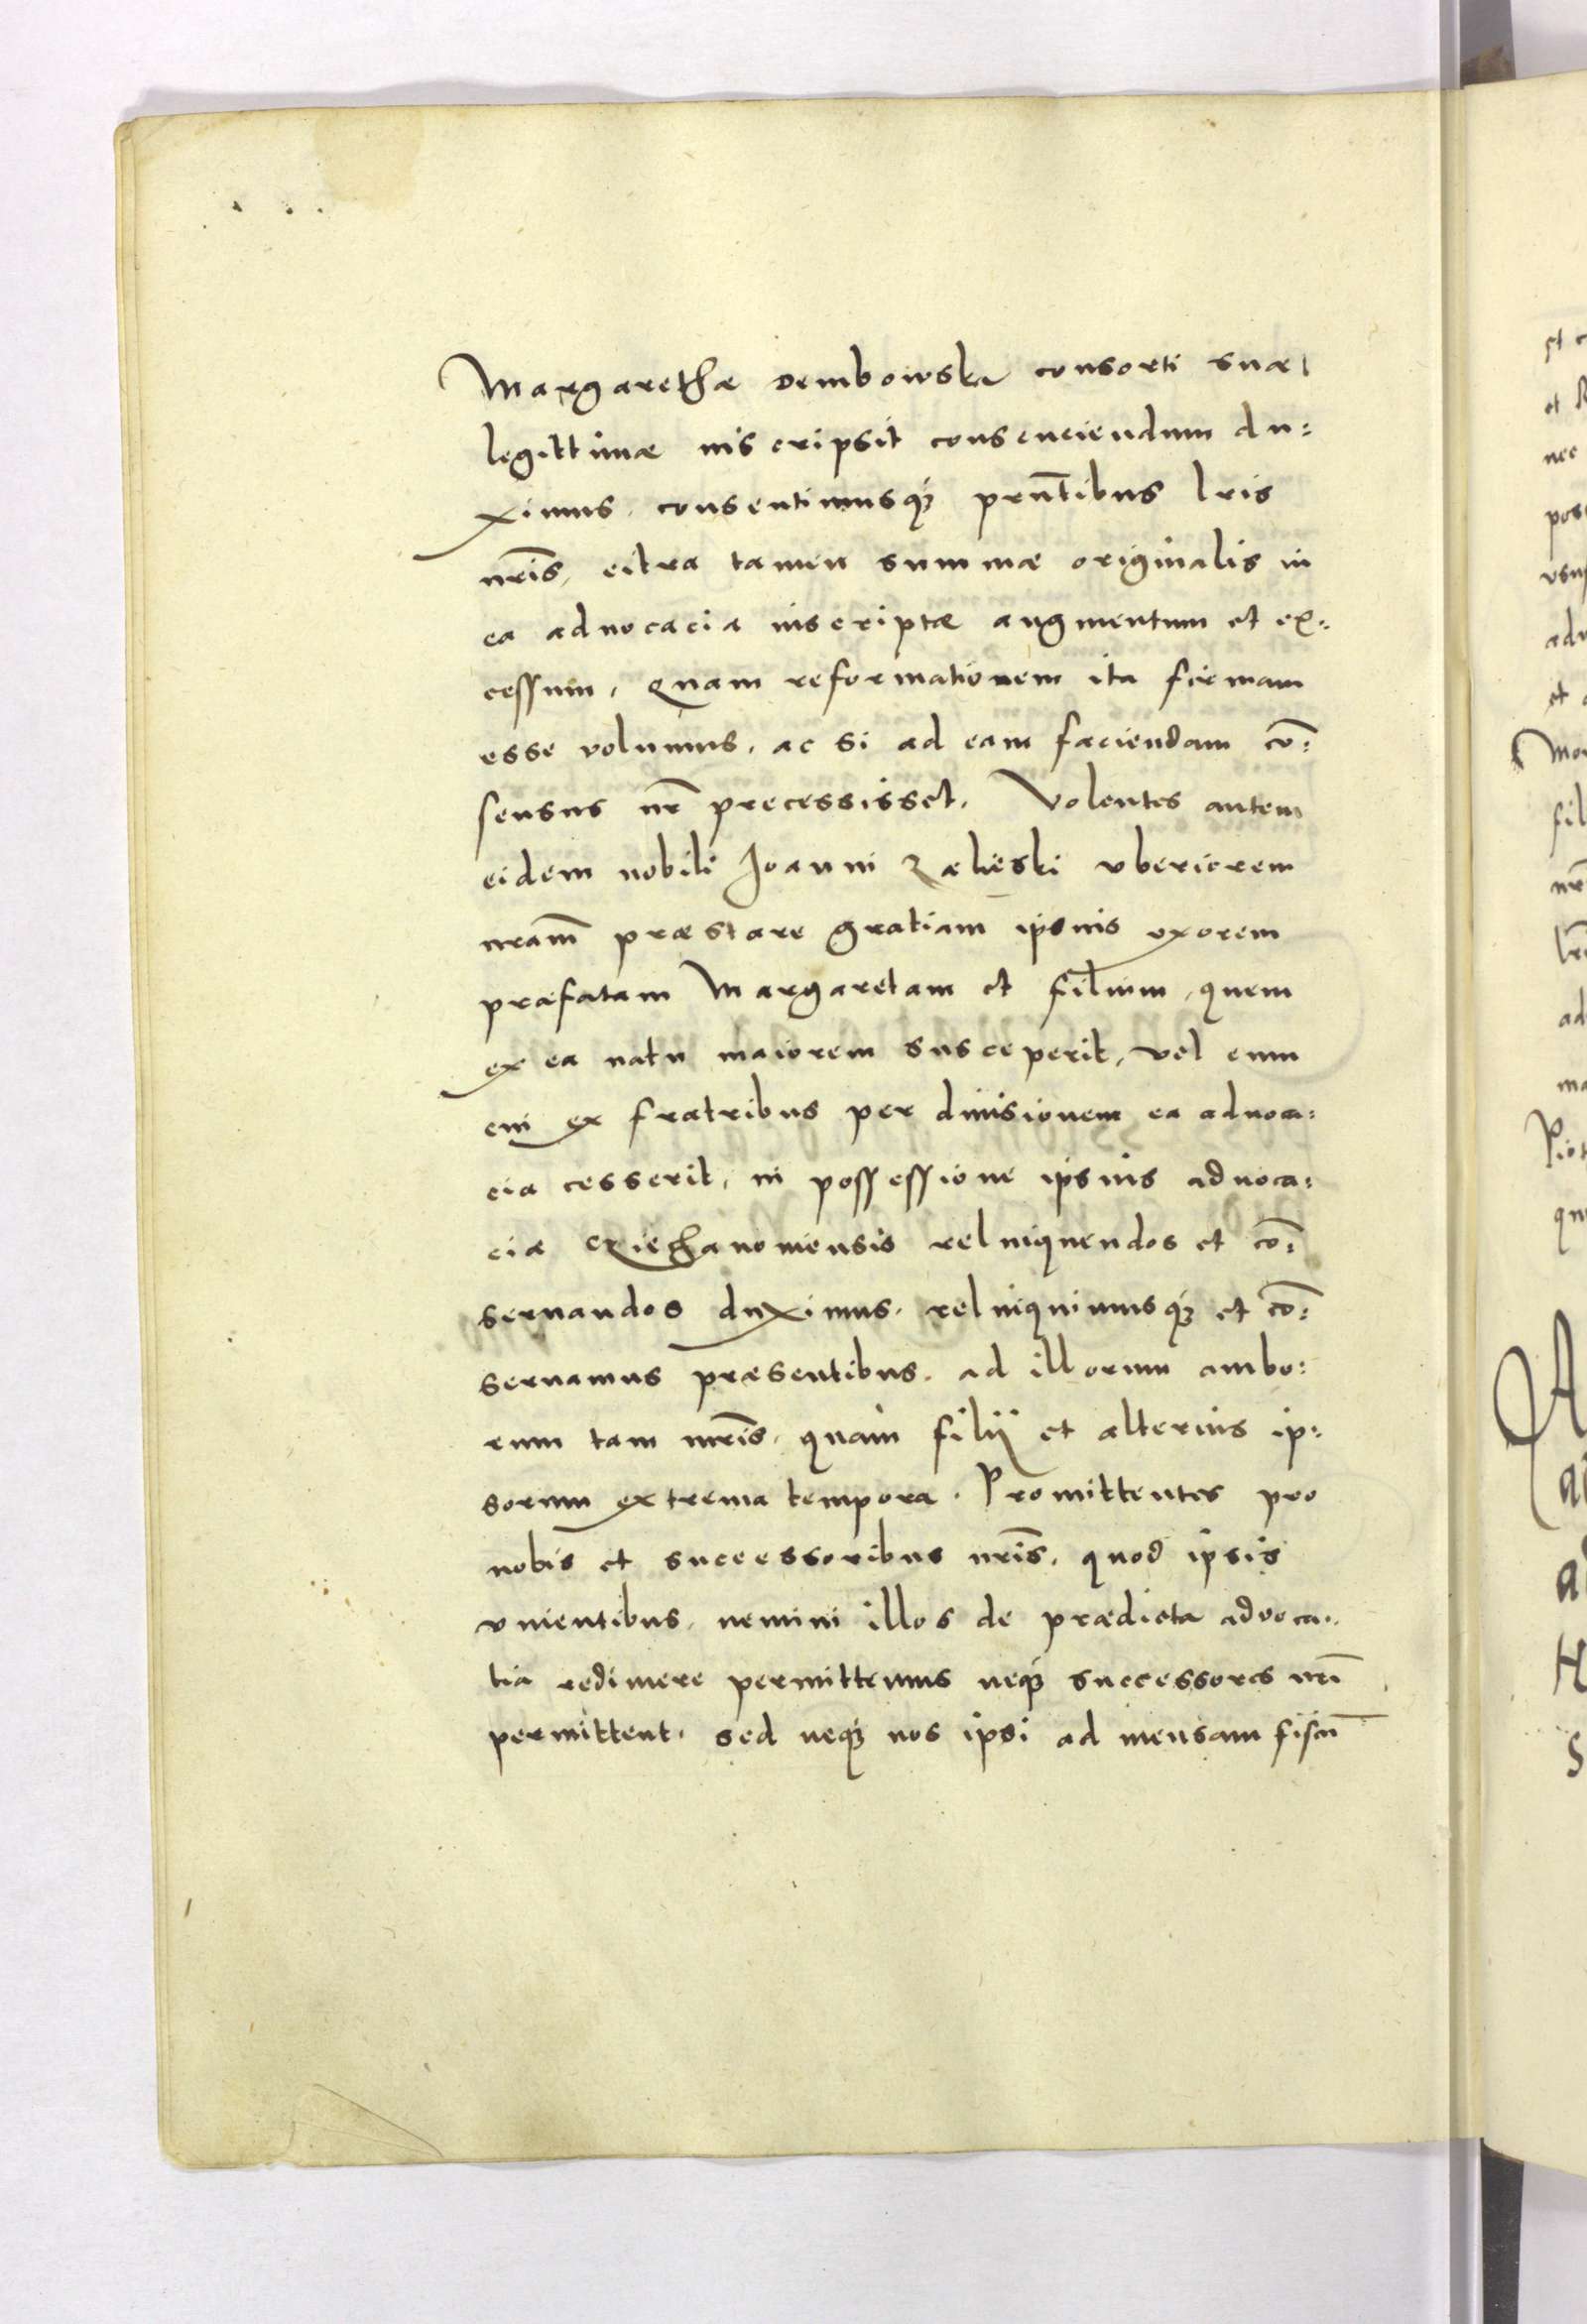 Margarethæ Dembowska consorti suæ
legittimæ inscripsit consenciendum du:
ximus, consentimusq₃ prn̄tibus lris
nr̄is, citra tamen summæ originalis in
ea aduocacia inscriptæ augmentum et ex:
cessum, Quam reformationem ita firmam
esse volumus, ac si ad eam faciendam cō:
sensus nr̄ precessisset. Volentes autem
eidem nobili Joanni Zalieski vberiorem
nram̄ præstare gratiam ipsius vxorem
præfatam Margaretam et filium, quem
ex ea natu maiorem susceperit, vel eum
cui ex fratribus per diuisionem ea aduoca:
cia cesserit, in possessione ipsius aduoca:
ciæ Cziechanouiensis relinquendos et cō:
seruandos duximus, relinquimusq₃ et cō:
seruamus præsentibus, ad illorum ambo:
rum tam mr̄is, quam filij et alterius ip:
sorum extrema tempora. Promittentes pro
nobis et successoribus nr̄is, quod ipsis
viuentibus, nemini illos de prædicta aduoca:
tia redimere permittemus neq₃ successores nr̄i
permittent, sed neq₃ nos ipsi ad mensam